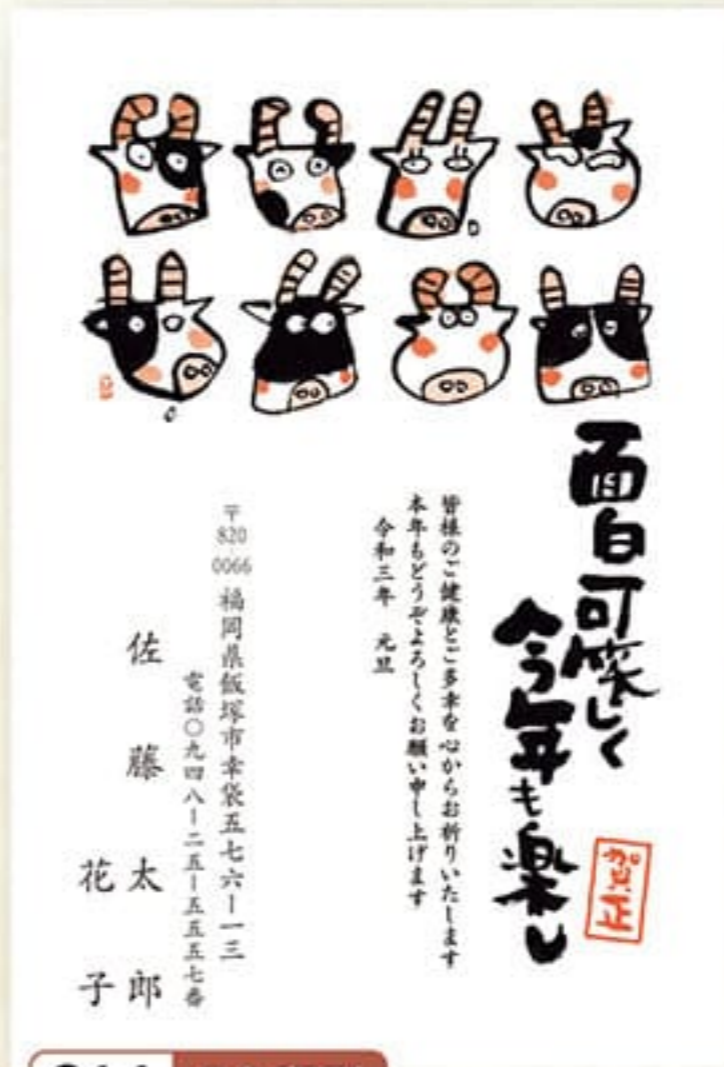 面白可笑しく
今年も楽し
賀正
皆様のご健康とご多幸を心からお祈りいたします
本年もどうぞよろしくお願い申し上げます
令和三年 元旦
〒820-0066 福岡県飯塚市幸袋五七六ー一三
電話〇九四八ー二五ー五五五七番
佐藤太郎
花子